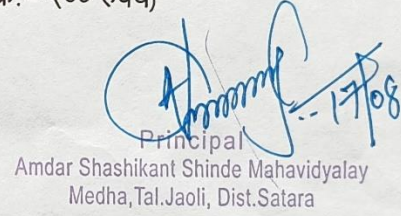 17/08
Principal
Amdar Shashikant Shinde Mahavidyalay
Medha,Tal.Jaoli, Dist.Satara